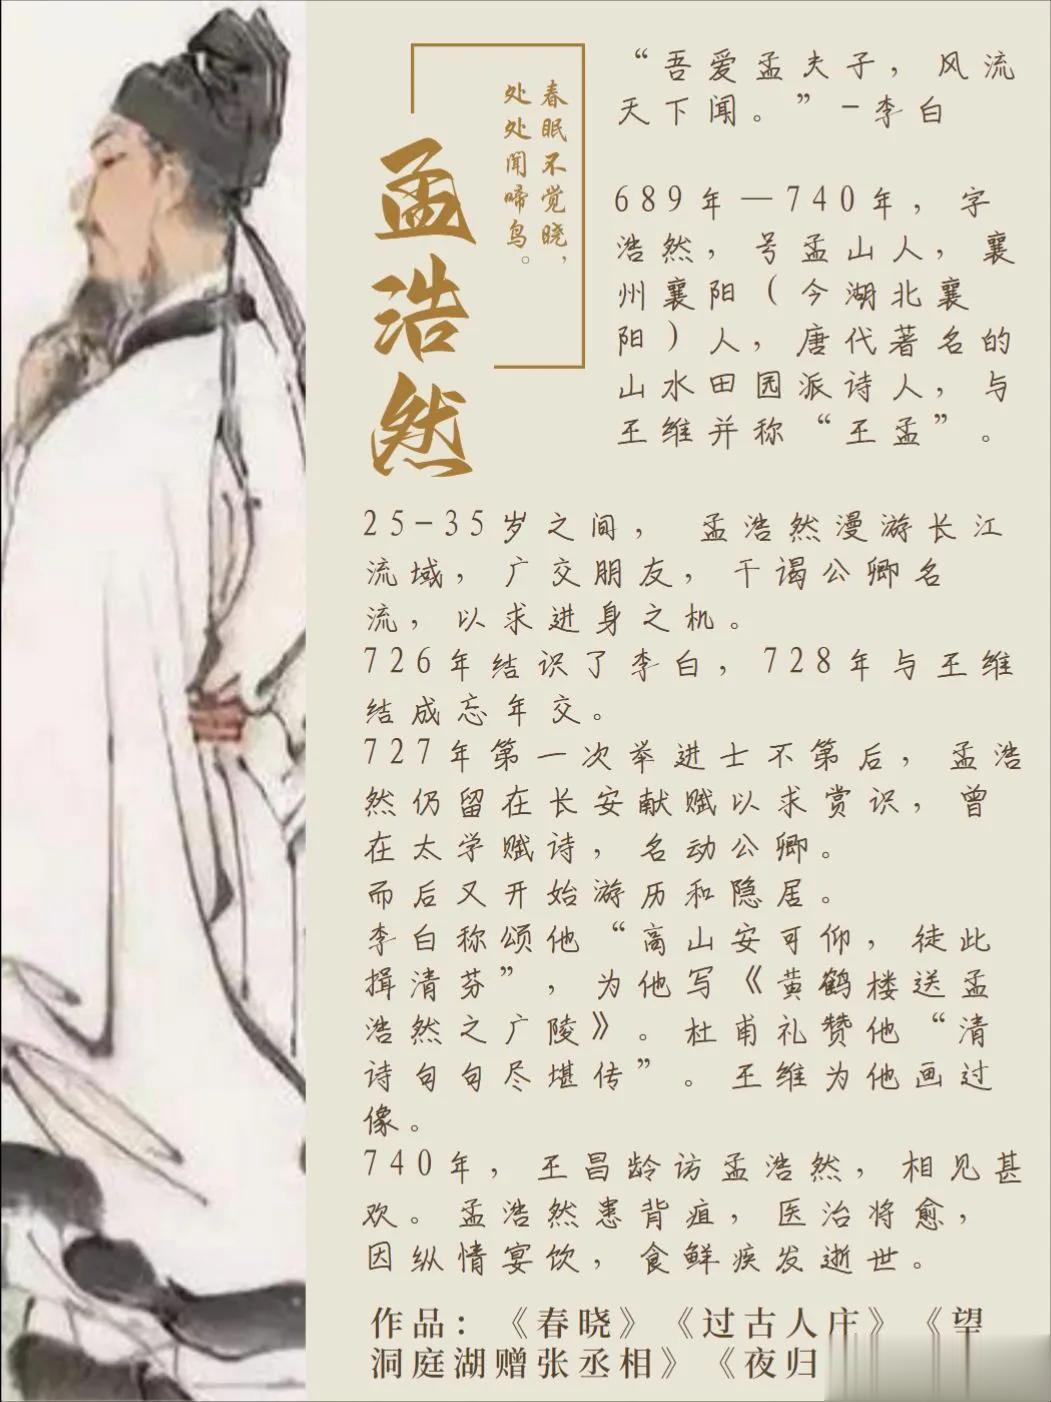 孟浩然
春眠不觉晓，
处处闻啼鸟。
“吾爱孟夫子，风流
天下闻。”-李白
689年—740年，字
浩然，号孟山人，襄
州襄阳（今湖北襄
阳）人，唐代著名的
山水田园派诗人，与
王维并称“王孟”。
25-35岁之间，孟浩然漫游长江
流域，广交朋友，干谒公卿名
流，以求进身之机。
726年结识了李白，728年与王维
结成忘年交。
727年第一次举进士不第后，孟浩
然仍留在长安献赋以求赏识，曾
在太学赋诗，名动公卿。
而后又开始游历和隐居。
李白称颂他“高山安可仰，徒此
揖清芬”，为他写《黄鹤楼送孟
浩然之广陵》。杜甫礼赞他“清
诗句句尽堪传”。王维为他画过
像。
740年，王昌龄访孟浩然，相见甚
欢。孟浩然患背疽，医治将愈，
因纵情宴饮，食鲜疾发逝世。
作品：《春晓》《过古人庄》《望
洞庭湖赠张丞相》《夜归